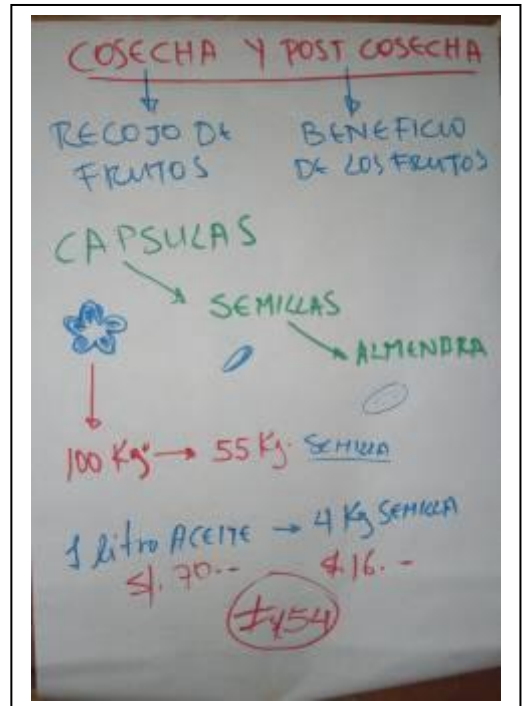 COSECHA Y POST COSECHA
RECOJO DE
FRUTOS
BENEFICIO
DE LOS FRUTOS
CAPSULAS
SEMILLAS
ALMENDRA
100 Kg. → 55 Kg. SEMILLA
1 litro ACEITE → 4 Kg SEMILLA
S/. 70.-- S/. 16.-